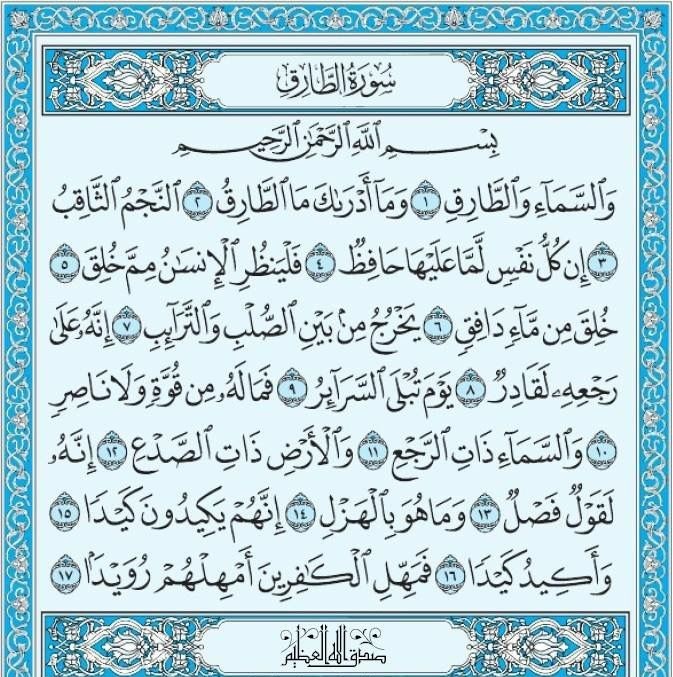 سُورَةُ الطَّارِقِ
بِسْمِ اللَّهِ الرَّحْمَٰنِ الرَّحِيمِ
وَالسَّمَاءِ وَالطَّارِقِ ١ وَمَا أَدْرَىٰكَ مَا الطَّارِقُ ٢ النَّجْمُ الثَّاقِبُ
٣ إِن كُلُّ نَفْسٍ لَّمَّا عَلَيْهَا حَافِظٌ ٤ فَلْيَنظُرِ الْإِنسَٰنُ مِمَّ خُلِقَ ٥
خُلِقَ مِن مَّاءٍ دَافِقٍ ٦ يَخْرُجُ مِنۢ بَيْنِ الصُّلْبِ وَالتَّرَائِبِ ٧ إِنَّهُۥ عَلَىٰ
رَجْعِهِۦ لَقَادِرٌ ٨ يَوْمَ تُبْلَى السَّرَائِرُ ٩ فَمَا لَهُۥ مِن قُوَّةٍ وَلَا نَاصِرٍ
١٠ وَالسَّمَاءِ ذَاتِ الرَّجْعِ ١١ وَالْأَرْضِ ذَاتِ الصَّدْعِ ١٢ إِنَّهُۥ
لَقَوْلٌ فَصْلٌ ١٣ وَمَا هُوَ بِالْهَزْلِ ١٤ إِنَّهُمْ يَكِيدُونَ كَيْدًا ١٥
وَأَكِيدُ كَيْدًا ١٦ فَمَهِّلِ الْكَٰفِرِينَ أَمْهِلْهُمْ رُوَيْدًۢا ١٧
صدق الله العظيم